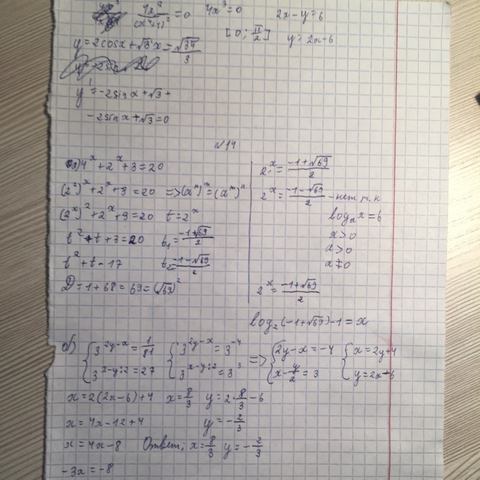 4x²/(x⁴+1)² = 0   4x³=0   2x-y=6
[0; π/2]   y=2x-6
y=2cosx+√3x-√3π/3
y'=-2sinx+√3+
-2sinx+√3=0
№14
а) 4ˣ+2ˣ+3=20
(2ˣ)²+2ˣ+3=20 =>(aᵐ)ˣ=(aˣ)ᵐ
(2ˣ)²+2ˣ+3=20   t=2ˣ
t²+t+3=20   t₁=(-1+√69)/2
t²+t-17   t₂=(-1-√69)/2
D=1+68=69=(√69)²
2ˣ=(-1+√69)/2
2ˣ=(-1-√69)/2 - нет т.к
logₐx=b
x>0
a>0
a≠0
2ˣ=(-1+√69)/2
log₂(-1+√69)-1=x
б) {3^(2y-x)=1/81   {3^(2y-x)=3⁻⁴   => {2y-x=-4   {x=2y+4
{3^(x-y:2)=27   {3^(x-y:2)=3³   {x-y/2=3   {y=2x-6
x=2(2x-6)+4   x=8/3   y=2·8/3-6
x=4x-12+4   y=-2/3
x=4x-8   Ответ: x=8/3 y=-2/3
-3x=-8